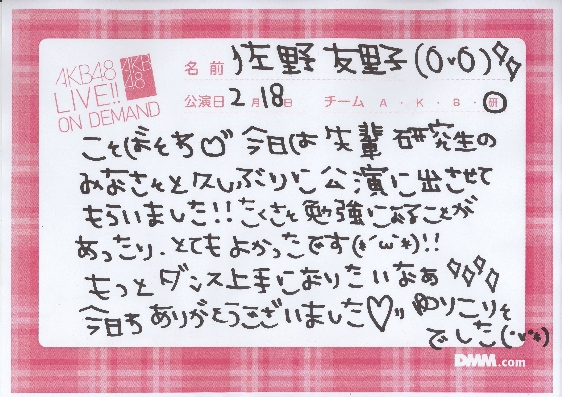 AKB48
LIVE!!
ON DEMAND
AKB
48
名前 佐野友里子(O᎐O)
公演日 2月18日 チーム A・K・B・研
こんばんわ♡ 今日は先輩研究生の
みなさんと久しぶりに公演に出させて
もらいました!!たくさん勉強になることが
あったり、とてもよかったです(*´ω`*)!!
もっとダンス上手になりたいなぁ
今日もありがとうございました♡〃 ゆりこりん
でした(・v・*)
DMM.com